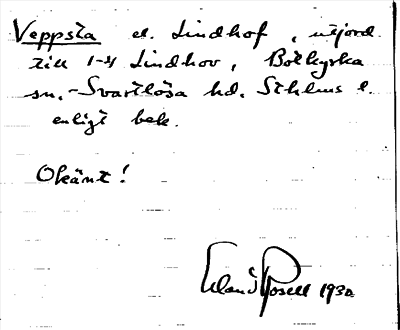 Veppsta el. Lindhof, utjord
till 1-4 Lindhov, Botkyrka
sn. - Svartlösa hd. Sthlms l.
enligt bek.
Okänt!
1930